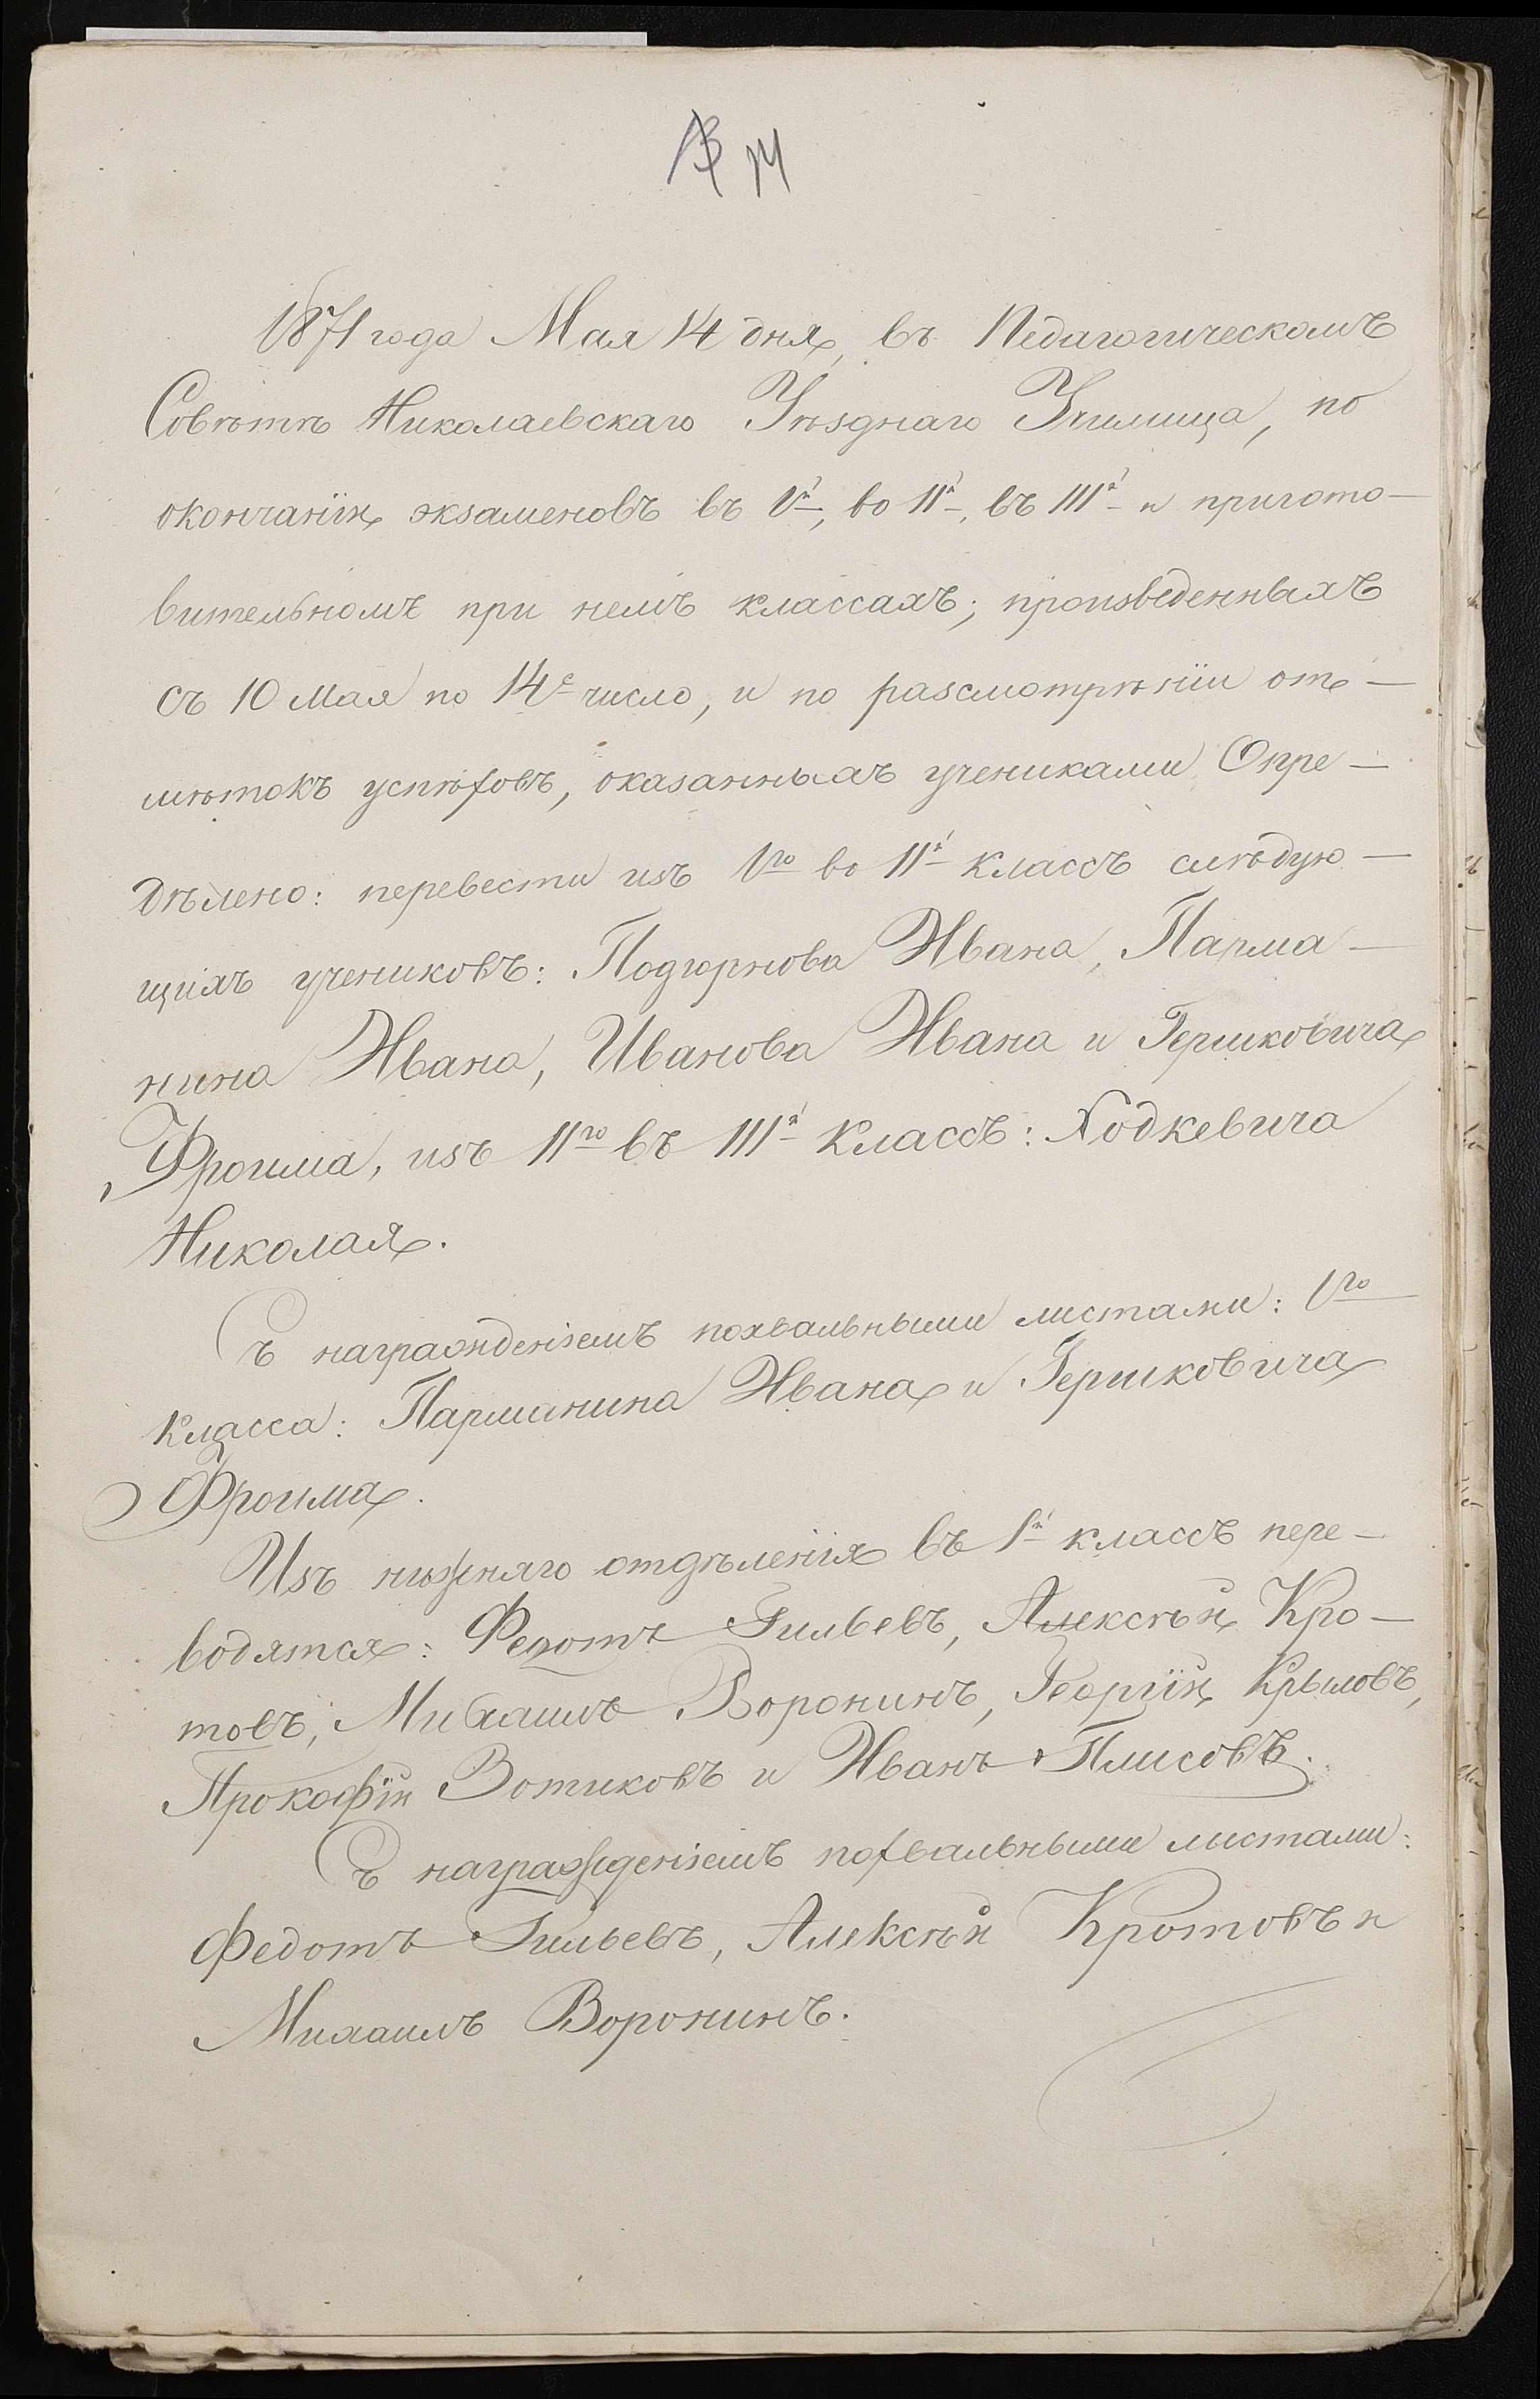 14
1871 года Мая 14 дня, въ Педагогическомъ
Совѣтѣ Николаевскаго Уѣзднаго Училища, по
окончаніи экзаменовъ въ Iй, во IIй, въ IIIй и пригото-
вительномъ при немъ классахъ; произведенныхъ
съ 10 Мая по 14е число, и по разсмотрѣніи от-
мѣтокъ успѣховъ, оказанныхъ учениками Опре-
дѣлено: перевести изъ Iго во IIй классъ слѣдую-
щихъ учениковъ: Подгорнова Ивана, Парма-
нина Ивана, Иванова Ивана и Гершковича
Фроима, изъ IIго въ IIIй классъ: Ходкевича
Николая.
Съ награжденіемъ похвальными листами: Iго
класса: Парманина Ивана и Гершковича
Фроима.
Изъ нижняго отдѣленія въ Iй классъ пере-
водятся: Федотъ Гильевъ, Алексѣй Кро-
товъ, Михаилъ Воронинъ, Георгій Крыловъ,
Прокофій Вотиковъ и Иванъ Плисовъ.
Съ награжденіемъ похвальными листами:
Федотъ Гильевъ, Алексѣй Кротовъ и
Михаилъ Воронинъ.